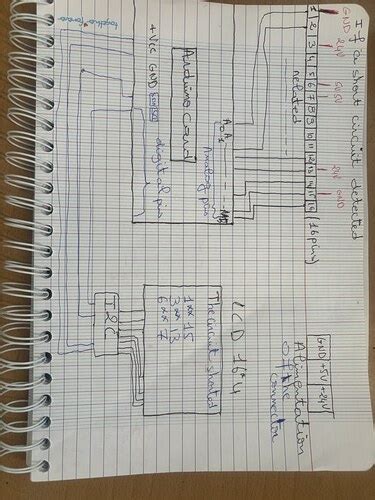 If a short circuit detected
GND 24V 5V 5V GND
1 2 3 4 5 6 7 8 9 10 11 12 13 14 15 16 (16 pins)
related
A0 A1
Analog pins
Arduino card
digital pins
+Vcc GND
Alimentation
of the
connector
GND +5V +24V
LCD 16*4
The circuit shorted
1 ** 15
3 ** 13
6 ** 7
I2C